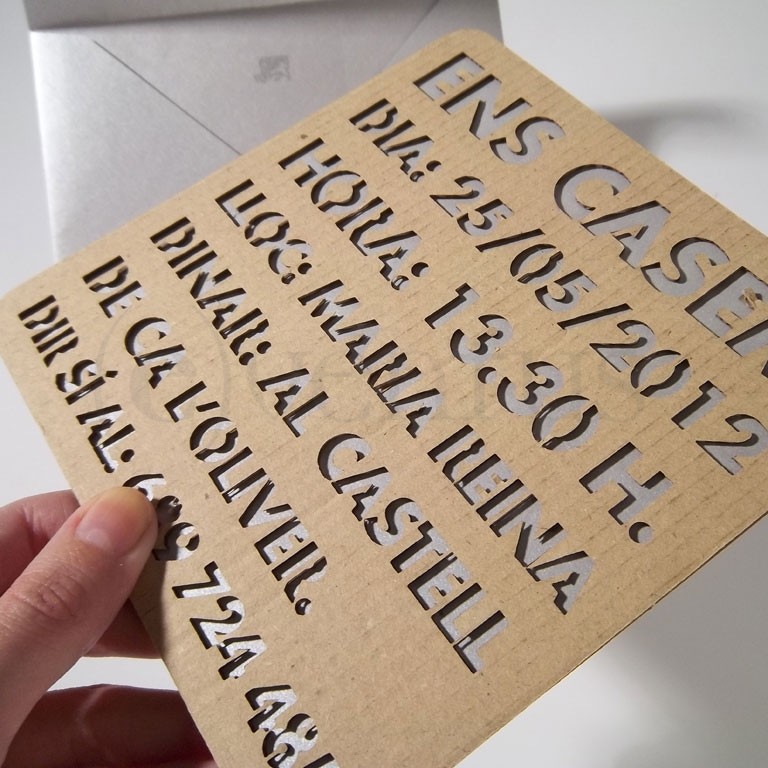 ENS CASEM
DIA: 25/05/2012
HORA: 13.30 H.
LLOC: MARIA REINA
DINAR: AL CASTELL
DE CA L'OLIVER.
DIR SÍ AL: 724